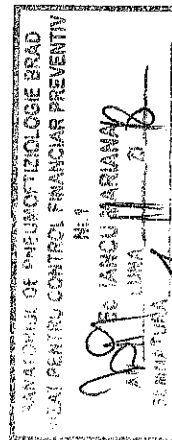 SANATORIUL DE PNEUMOFTIZIOLOGIE BRAD
VIZAT PENTRU CONTROL FINANCIAR PREVENTIV
Nr. 1
EC IANCU MARIANA
LUNA
SEMNATURA